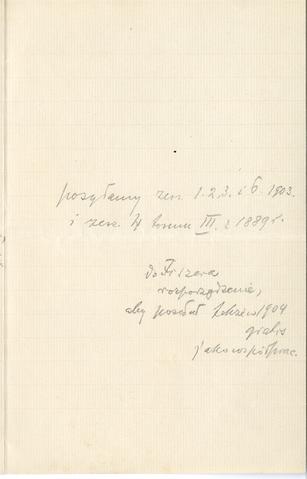 posyłamy zesz. 1. 2. 3. i 6. 1903.
i zesz. 4 tomu III. z 1889 r.
do Fiszera
rozporządzenie,
aby posłał 1904
gratis
jako współprac.